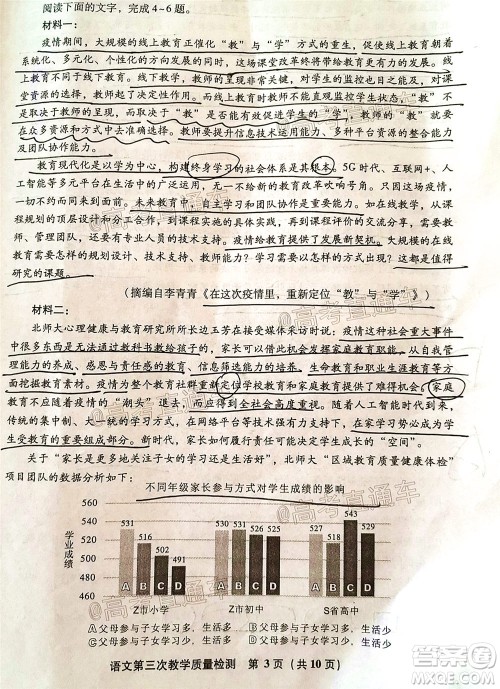 阅读下面的文字，完成4~6题。
材料一：
疫情期间，大规模的线上教育正催化“教”与“学”方式的重生，促使线上教育朝着
系统化、多元化、个性化的方向发展，这场课堂改革终将带来教育更大的变革与创新。线
上教育不同于线下教育。线下教育，教师的呈现非常关键，对学生的监控也已是能及，对课
堂资源的选择，教师起了决定性作用。而线上教育教师不能直观监控学生状态，“教”不
是取决于教师的呈现，而取决于“教”是否能有效促进学生的“学”，教师的“教”就要
在众多资源和方式中去准确选择。教师要提升信息技术运用能力、平台多样资源的整合能力
及团队协作能力。
教育现代化是以学为中心，构建终身学习的社会体系是其根本。5G时代、互联网+、人
工智能等多元平台在生活中的广泛运用，无一不影响着新的教育改革吹响号角。只是这场疫情，
一切如约而来。未来，对于教师来说，自主学习和团队协作意识的加强尤为重要。从课
程规划的顶层设计和分工合作、到线上课堂实施及学习效果反馈，这些都需要教研员、教
师、管理团队，还要有专业人员的技术支持。疫情给教育提供了发展新契机。大规模的在线
教育需要怎样的规划设计、技术支持、教师能力？学习需要如何激发和维持？这都是值得
研究的课题。
（摘编自李青青《在这次疫情里，重新定位“教”与“学”》）
材料二：
北师大心理健康与教育研究所所长边玉芳等在文章中指出：疫情这种社会重大事
件中很多东西是无法通过教科书教给孩子的，家长可以趁机会发挥家庭教育职能。从自我管
理能力的养成、感恩与责任感的教育、信息选择能力的培养、生命教育和职业生涯教育等方
面挖掘教育素材。疫情为整个社群重新定位学校教育和家庭教育提供了难得机会，家庭
教育在疫情的“潮头”退去后，应得到全社会高度重视。随着人工智能时代到来，
学校集中教学一统天下的局面将被打破，在家学习势必成为
学生受教育的重要组成部分。新时代，家长如何履行责任需要更多的“空间”。
关于“家长更多关注子女的学习还是生活好”，北师大“区域教育质量健康体检”
项目团队的数据分析如下：
不同年级家长参与方式对学生成绩的影响
学业成绩
560
540
520
500
480
460
531 516 502 491
530 531 525 524
527 516 543 529
A B C D A B C D A B C D
Z市小学 Z市初中 S省高中
A父母参与子女学习多，生活多
B父母参与子女学习多，生活少
C父母参与子女学习少，生活多
D父母参与子女学习少，生活少
语文第三次教学质量检测 第3页（共10页）
@高考直通车
答案圈